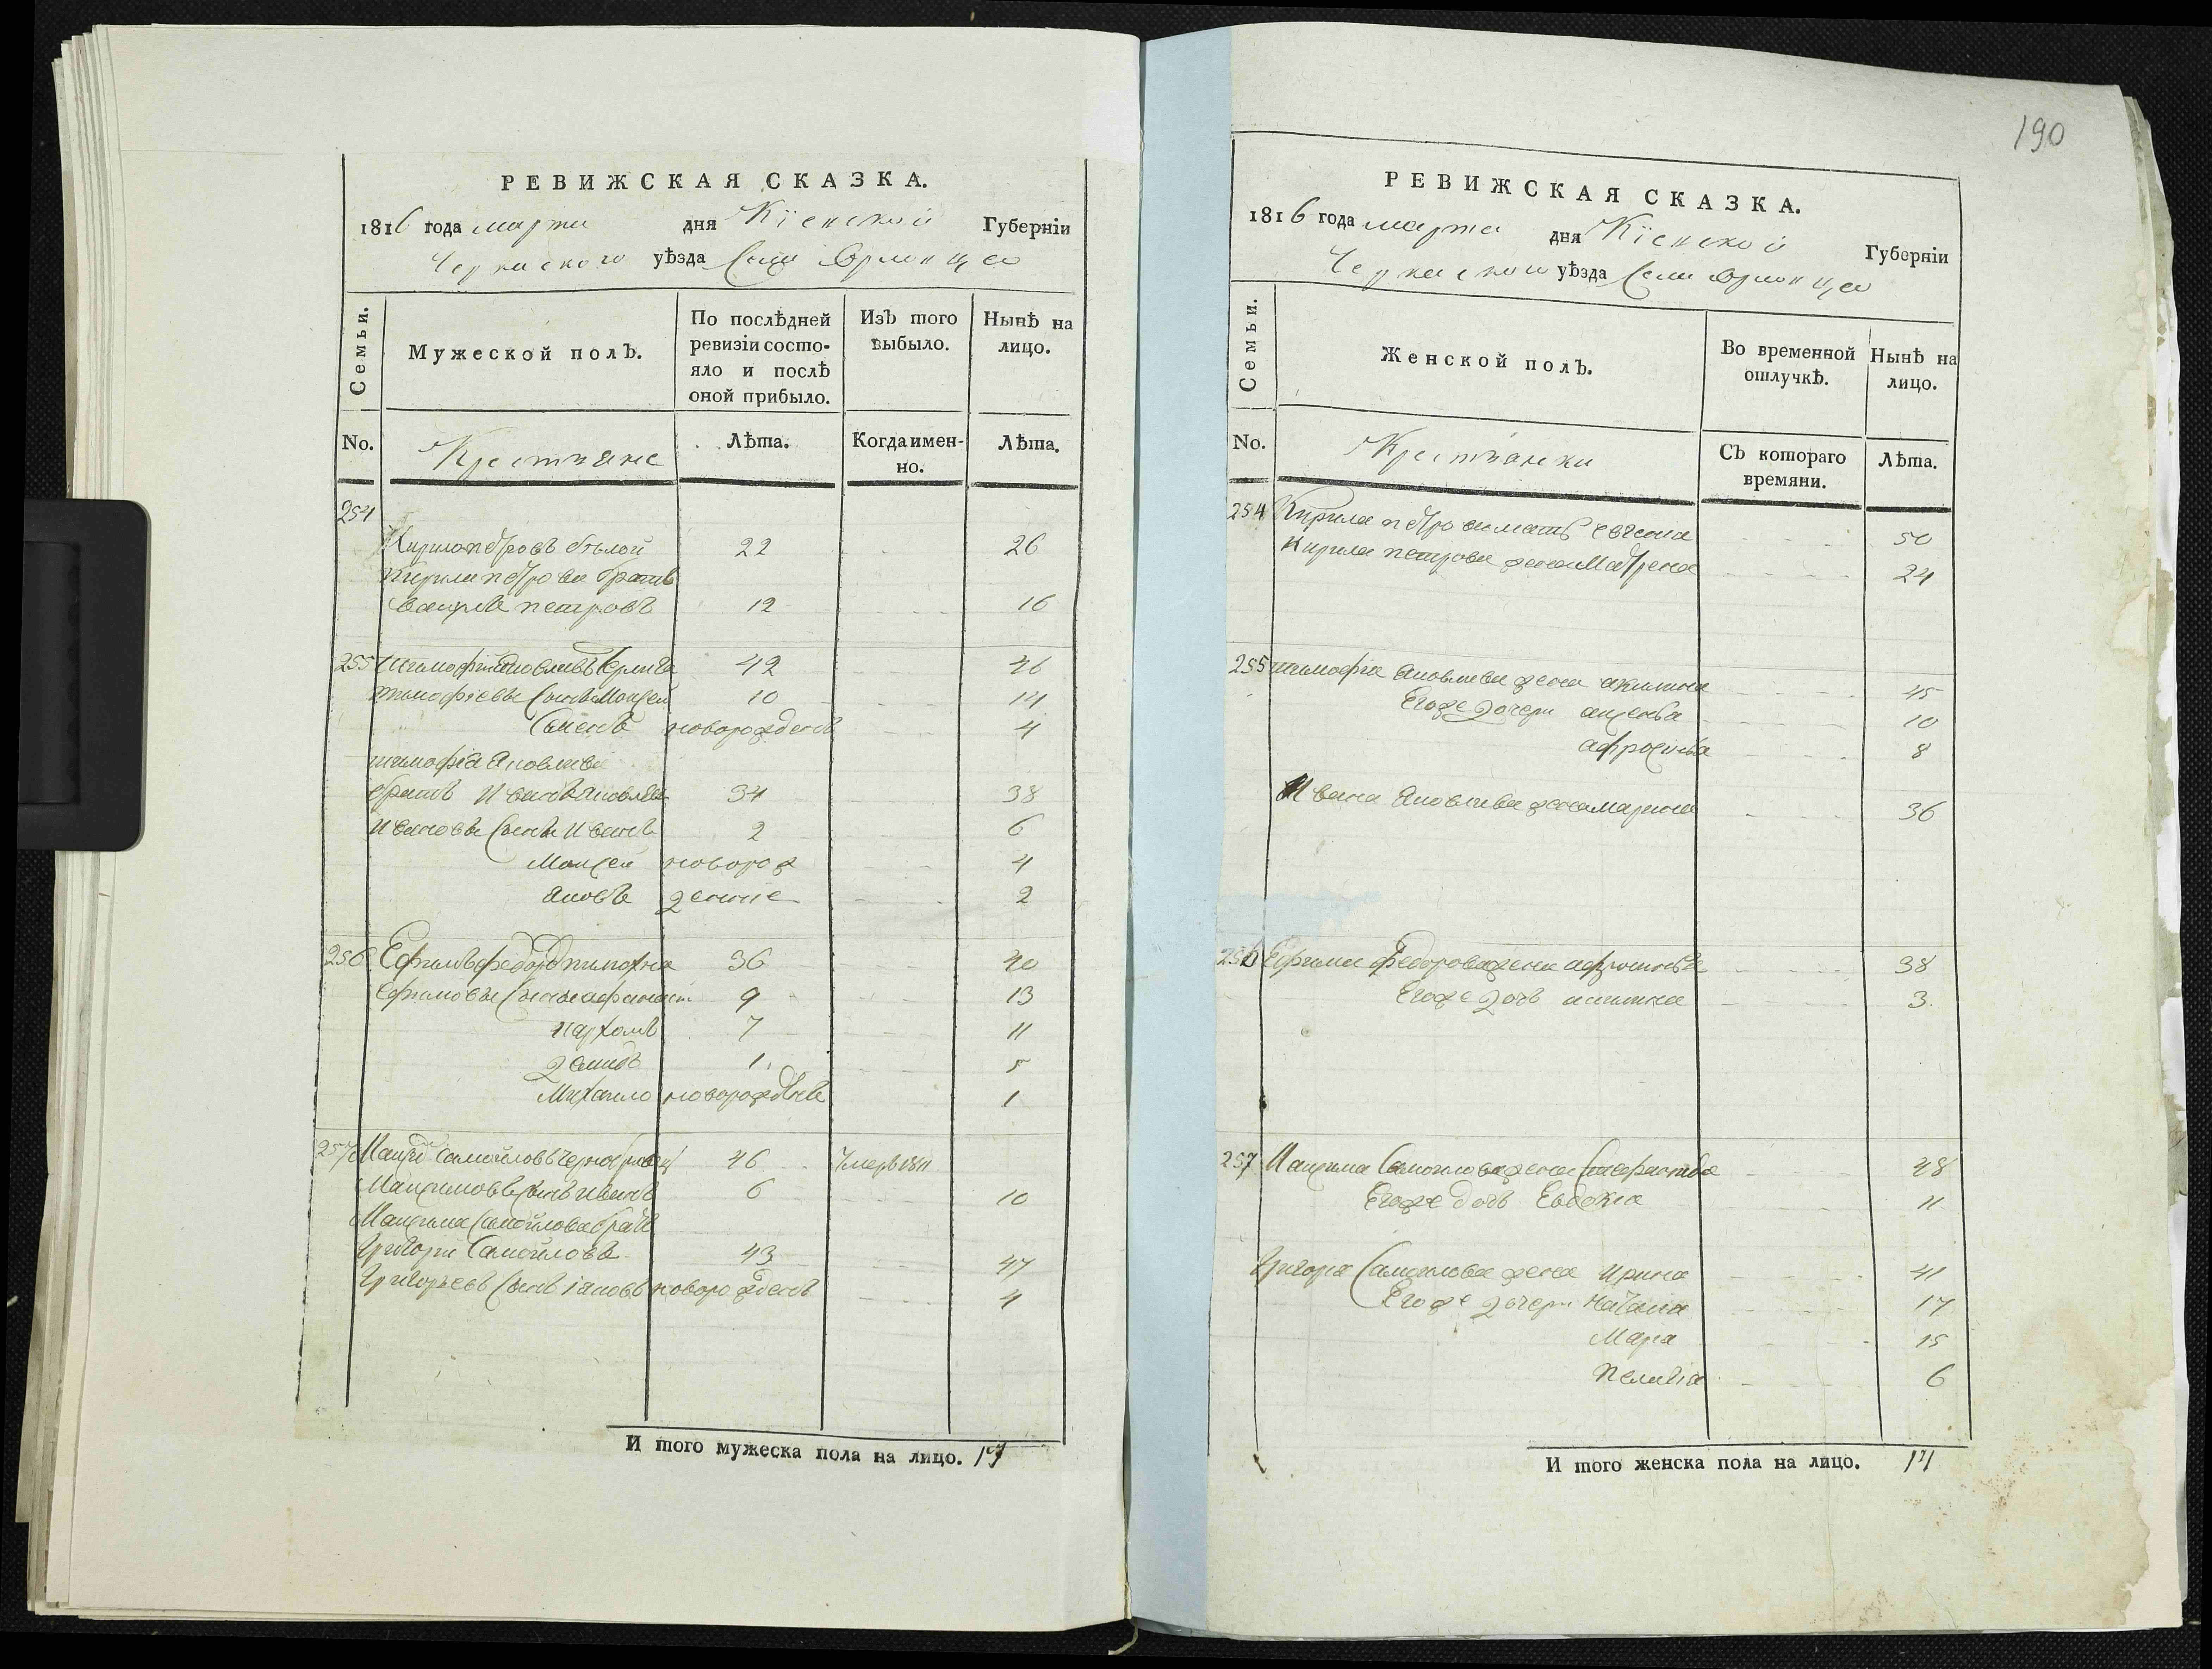 РЕВИЖСКАЯ СКАЗКА.
1816 года марта дня Кіевской Губерніи
Черкаского уѣзда Села
Семьи. Мужеской полъ. По послѣдней ревизіи состо-яло и послѣ оной прибыло. Изъ того выбыло. Нынѣ на лицо.
No. Крестьяне Лѣта. Когда имен-но. Лѣта.
254
Кирило Петровъ бѣлой 22 26
Кирила Петрова братъ
Василь Петровъ 12 16
255 Тимофѣй Яковлевъ 42 46
Тимофѣевы Сыны Моисей 10 14
Семенъ новорожденъ 4
Тимофѣя Яковлева
братъ Иванъ Яковлевъ 34 38
Ивановы Сыны Иванъ 2 6
Моисей новорож 4
Яковъ денніе 2
256 Ефимъ Федоровъ 36 40
Ефимовы Сыны 9 13
Пархомъ 7 11
Демидъ 1 5
Михайло новорожденъ 1
257 Самойловъ 46 Умеръ 1811
Максимовъ Сынъ Иванъ 6 10
Максима Самойлова братъ
Григори Самойловъ 43 47
Григорьевъ Сынъ Іаковъ новорожденъ 4
И того мужеска пола на лицо. 17
190
РЕВИЖСКАЯ СКАЗКА.
1816 года марта дня Кіевской Губерніи
Черкаского уѣзда Села
Семьи. Женской полъ. Во временной отлучкѣ. Нынѣ на лицо.
No. Крестьянки Съ котораго времяни. Лѣта.
254 Кирила Петрова мать 50
Кирила Петрова жена Матрена 24
255 Тимофѣя Яковлева жена акилина 45
Егоже дочери 10
афросинья 8
Ивана Яковлева жена Марина 36
256 Ефима Федорова жена афросинья 38
Егоже дочь 3
257 Максима Самойлова жена 48
Егоже дочь Евдокия 11
Григория Самойлова жена Ирина 41
Егоже дочери Наталия 17
Мария 15
Пелагия 6
И того женска пола на лицо. 14